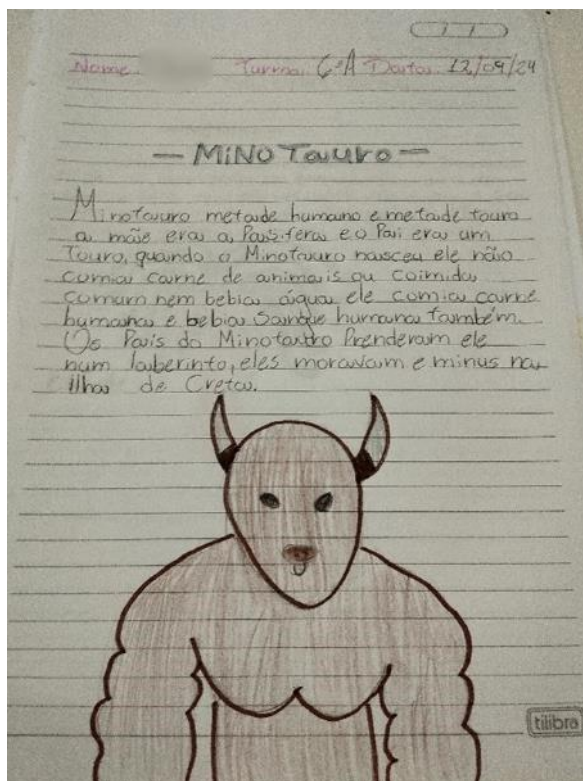 Nome Turma: 6ºA Data: 12/09/24
— MiNOTauro —
Minotauro metade humano e metade touro
a mãe era a Passifera e o Pai era um
Touro, quando o Minotauro nasceu ele não
comia carne de animais ou coimida
comum nem bebia água ele comia carne
humana e bebia Sangue humana também.
Os Pais do Minotauro Prenderam ele
num laberinto, eles moravam e minus na
ilha de Creta.
tilibra